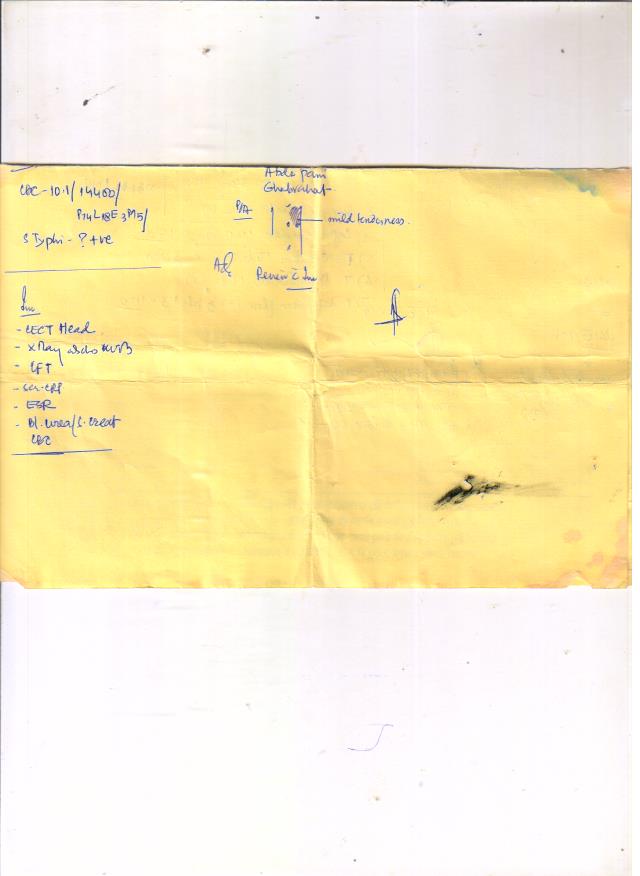 CBC - 10.1/14400/
P74L18E3M5/
S Typhi - ? +ve
Inv
- CECT Head
- X Ray abdo KUB
- LFT
- Ser. CRP
- ESR
- Bl. Urea/S. Creat
CBC
Abdo pain
Ghabrahat
P/A
mild tenderness.
Adv
Review c̄ Inv